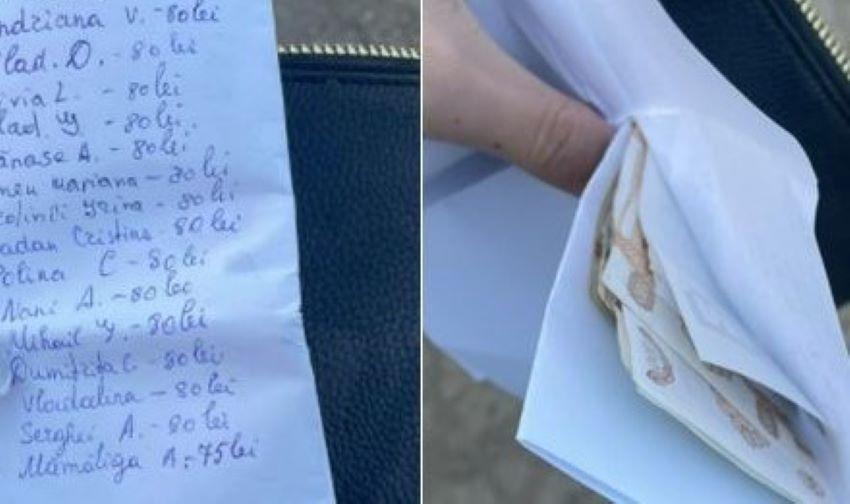 ndziana V. - 80 lei
lad. D. - 80 lei
L. - 80 lei
lad. - 80 lei.
ănase A. - 80 lei
Mariana - 80 lei
Irina - 80 lei
adan Cristina 80 lei
Polina C - 80 lei
Nani A. - 80 lei
Mihail - 80 lei
Dumitrița C. - 80 lei
- 80 lei
Serghei A. - 80 lei
Mămăliga A. - 75 lei